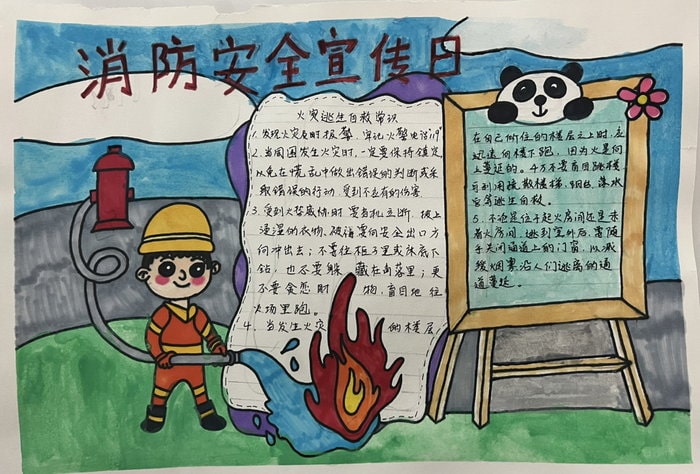 消防安全宣传日
火灾逃生自救常识
1.发现火灾及时报警,牢记火警电话119
2.当周围发生火灾时,一定要保持镇定,
以免在慌乱中做出错误的判断或采
取错误的行动,受到不应有的伤害
3.受到火势威胁时要当机立断,披上
浸湿的衣物,被褥等向安全出口方
向冲出去;不要往柜子里或床底下
钻,也不要躲藏在角落里;更
不要贪恋财物,盲目地往
火场里跑。
4.当发生火灾的楼层
在自己所住的楼层之上时,应
迅速向楼下跑,因为火是向
上蔓延的。千万不要盲目跳楼,
可利用疏散楼梯、阳台、落水
管等逃生自救。
5.不论是位于起火房间还是未
着火房间,逃到室外后,要随
手关闭通道上的门窗,以减
缓烟雾沿人们逃离的通
道蔓延。